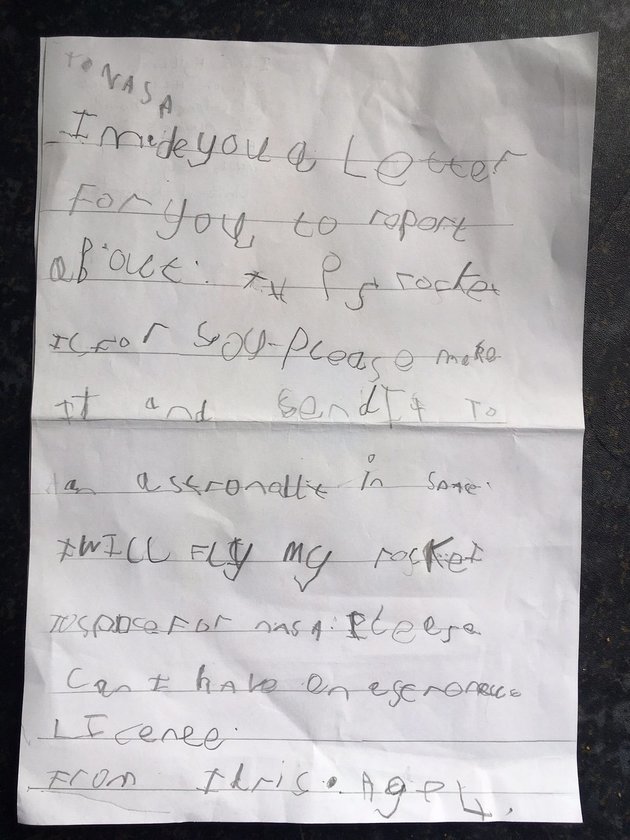 TO NASA
I made you a Letter
For you to report
aB'out. It is rocket
is For you-Please make
it and send It To
an astronallt in some.
I WILL FLy my rocKet
TO space For nasa. PLeese
Can I have an
LIcence.
From Idris. Age 4.